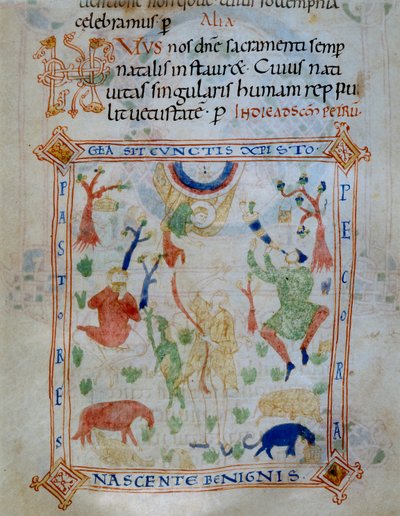 celebramus p̄ Alia
HUIUS nos dn̄e sacramenti semp̄
natalis instaur&. Cuius nati
uitas singularis humam reppu
lit uetustatē. p̄ IN DIE AD SCM PETRU
GEA SIT CUNCTIS XPISTO
PASTORES
PECORA
NASCENTE BENIGNIS